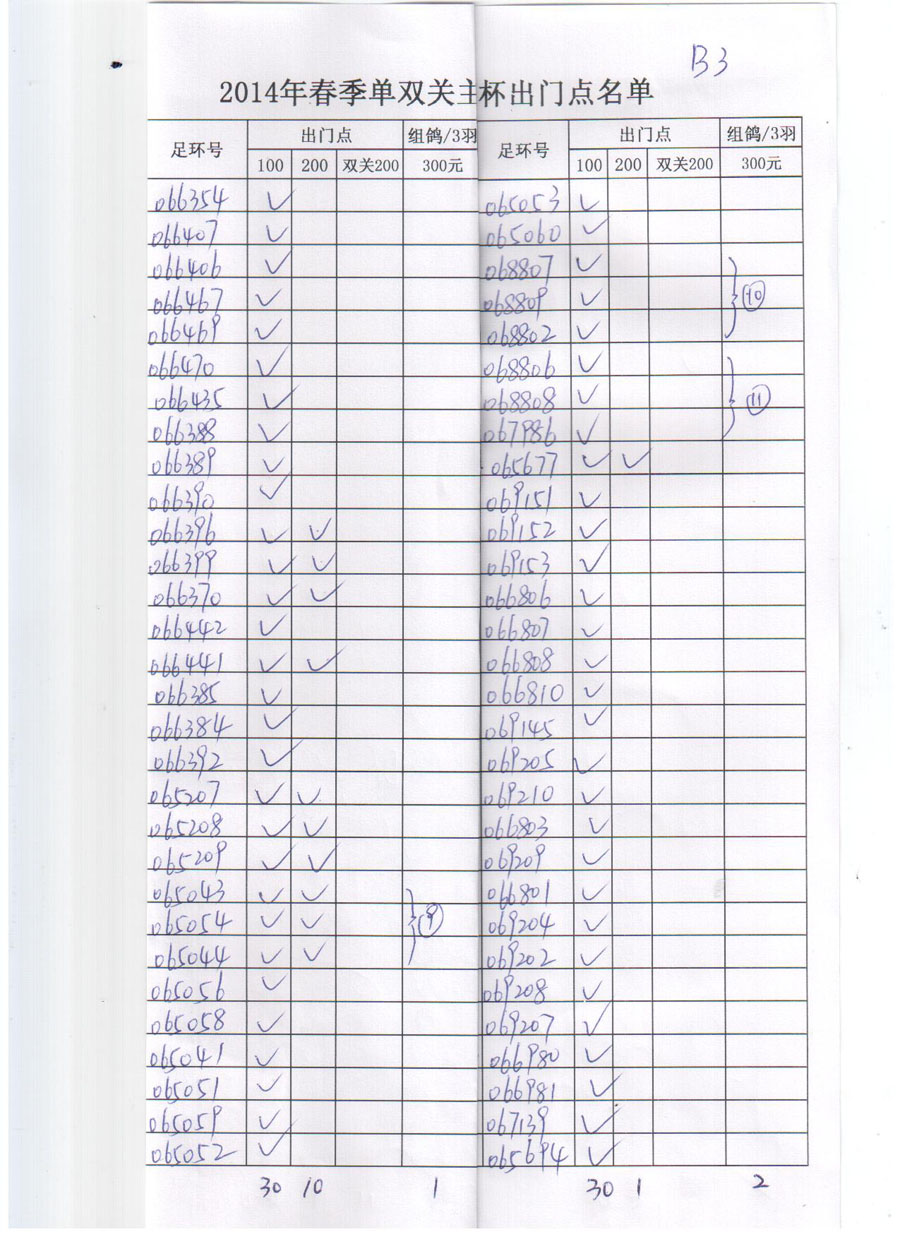 B3
2014年春季单双关主杯出门点名单
足环号 出门点 组鸽/3羽 足环号 出门点 组鸽/3羽
100 200 双关200 300元 100 200 双关200 300元
066354 ✓ 065053 ✓
066407 ✓ 065060 ✓
066406 ✓ 068807 ✓
066467 ✓ 068809 ✓ ⑩
066469 ✓ 068802 ✓
066470 ✓ 068806 ✓
066435 ✓ 068808 ✓ ⑪
066388 ✓ 067986 ✓
066389 ✓ 065677 ✓ ✓
066390 ✓ 069151 ✓
066396 ✓ ✓ 069152 ✓
066399 ✓ ✓ 069153 ✓
066370 ✓ ✓ 066806 ✓
066442 ✓ 066807 ✓
066441 ✓ ✓ 066808 ✓
066385 ✓ 066810 ✓
066384 ✓ 069145 ✓
066392 ✓ 069205 ✓
065207 ✓ ✓ 069210 ✓
065208 ✓ ✓ 066803 ✓
065209 ✓ ✓ 069209 ✓
065043 ✓ ✓ 066801 ✓
065054 ✓ ✓ ⑨ 069204 ✓
065044 ✓ ✓ 069202 ✓
065056 ✓ 069208 ✓
065058 ✓ 069207 ✓
065041 ✓ 066980 ✓
065051 ✓ 066981 ✓
065059 ✓ 067139 ✓
065052 ✓ 065694 ✓
30 10 1 30 1 2